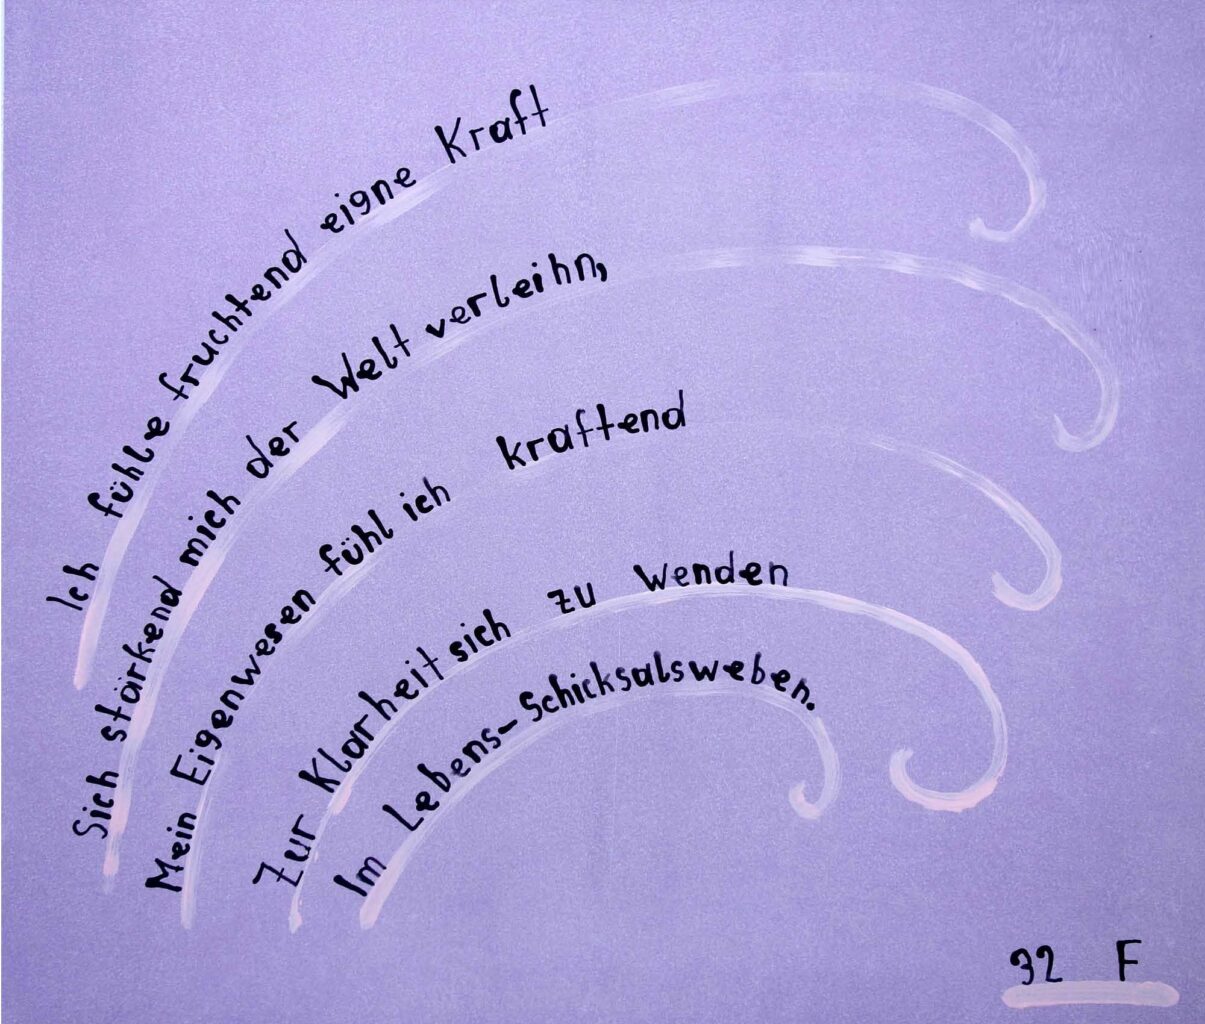 Ich fühle fruchtend eigne Kraft
Sich stärkend mich der Welt verleihn,
Mein Eigenwesen fühl ich kraftend
Zur Klarheit sich zu wenden
Im Lebens-Schicksalsweben.
32 F